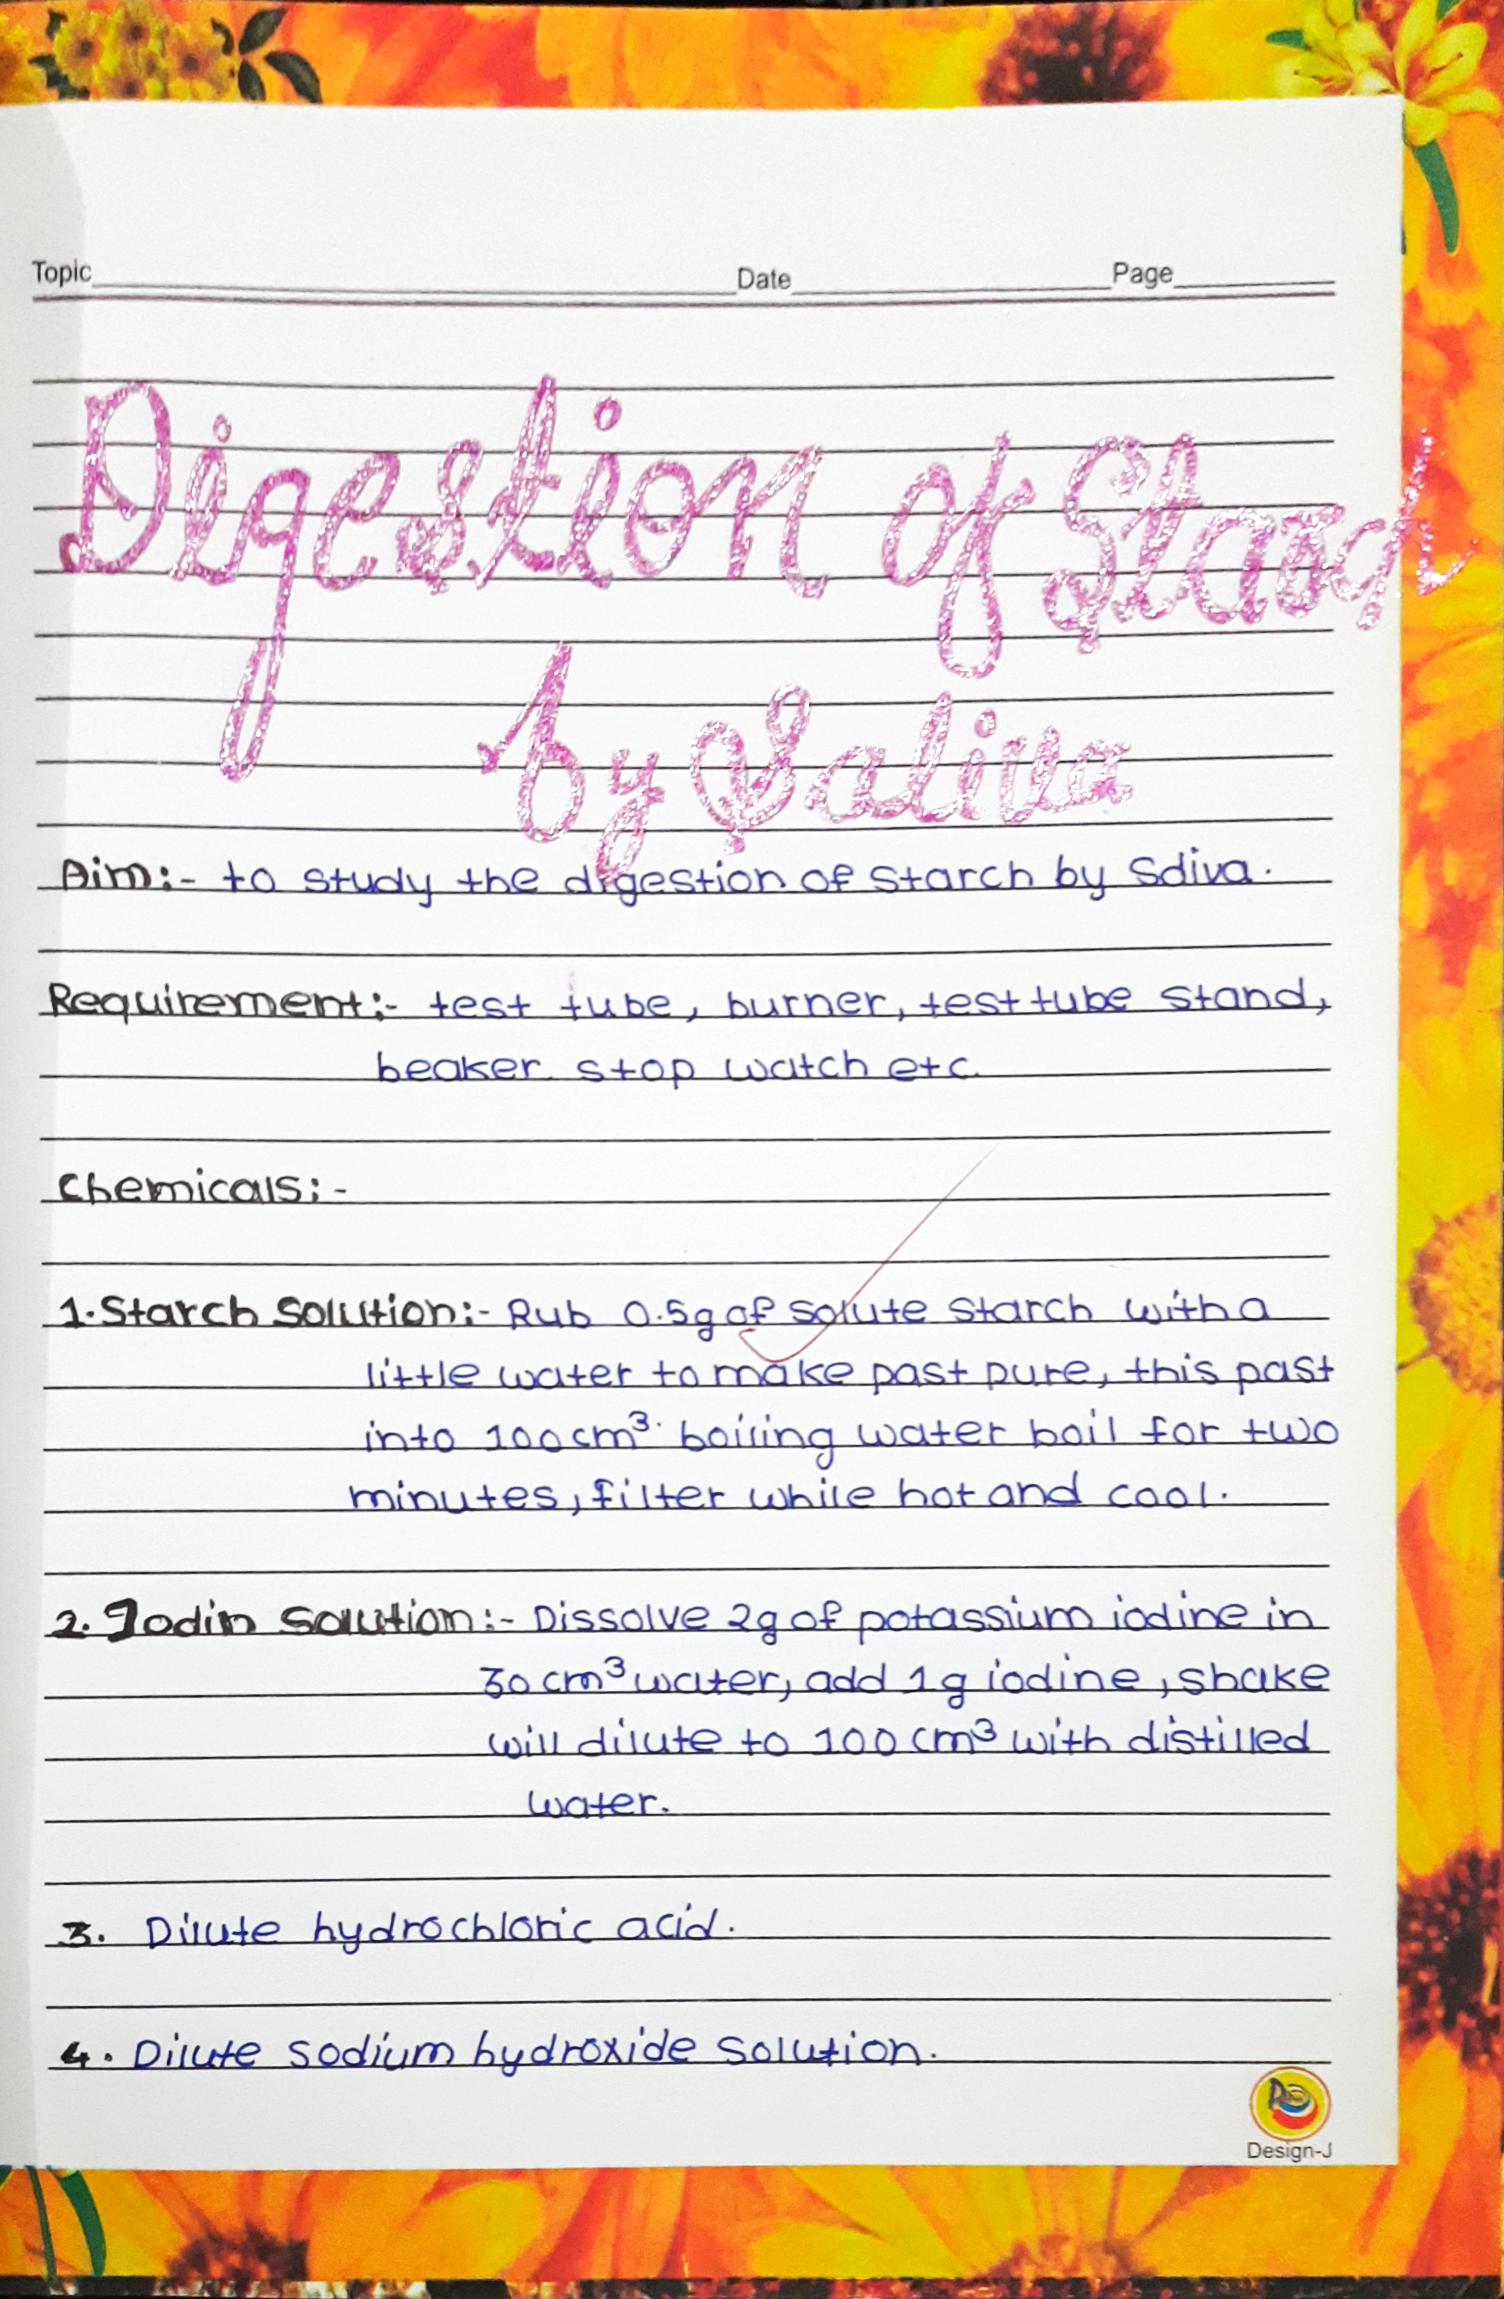 Topic Date Page
Digestion of Starch
by Saliva
Aim:- to study the digestion of starch by Sdiva.
Requirement:- test tube, burner, test tube stand,
beaker. stop watch etc.
Chemicals:-
1. Starch Solution:- Rub 0.5g of solute starch with a
little water to make past pure, this past
into 100 cm³ boiling water boil for two
minutes, filter while hot and cool.
2. Iodin Solution:- Dissolve 2g of potassium iodine in
30 cm³ water, add 1g iodine, shake
will dilute to 100 cm³ with distilled
water.
3. Dilute hydrochloric acid.
4. Dilute sodium hydroxide solution.
Design-J